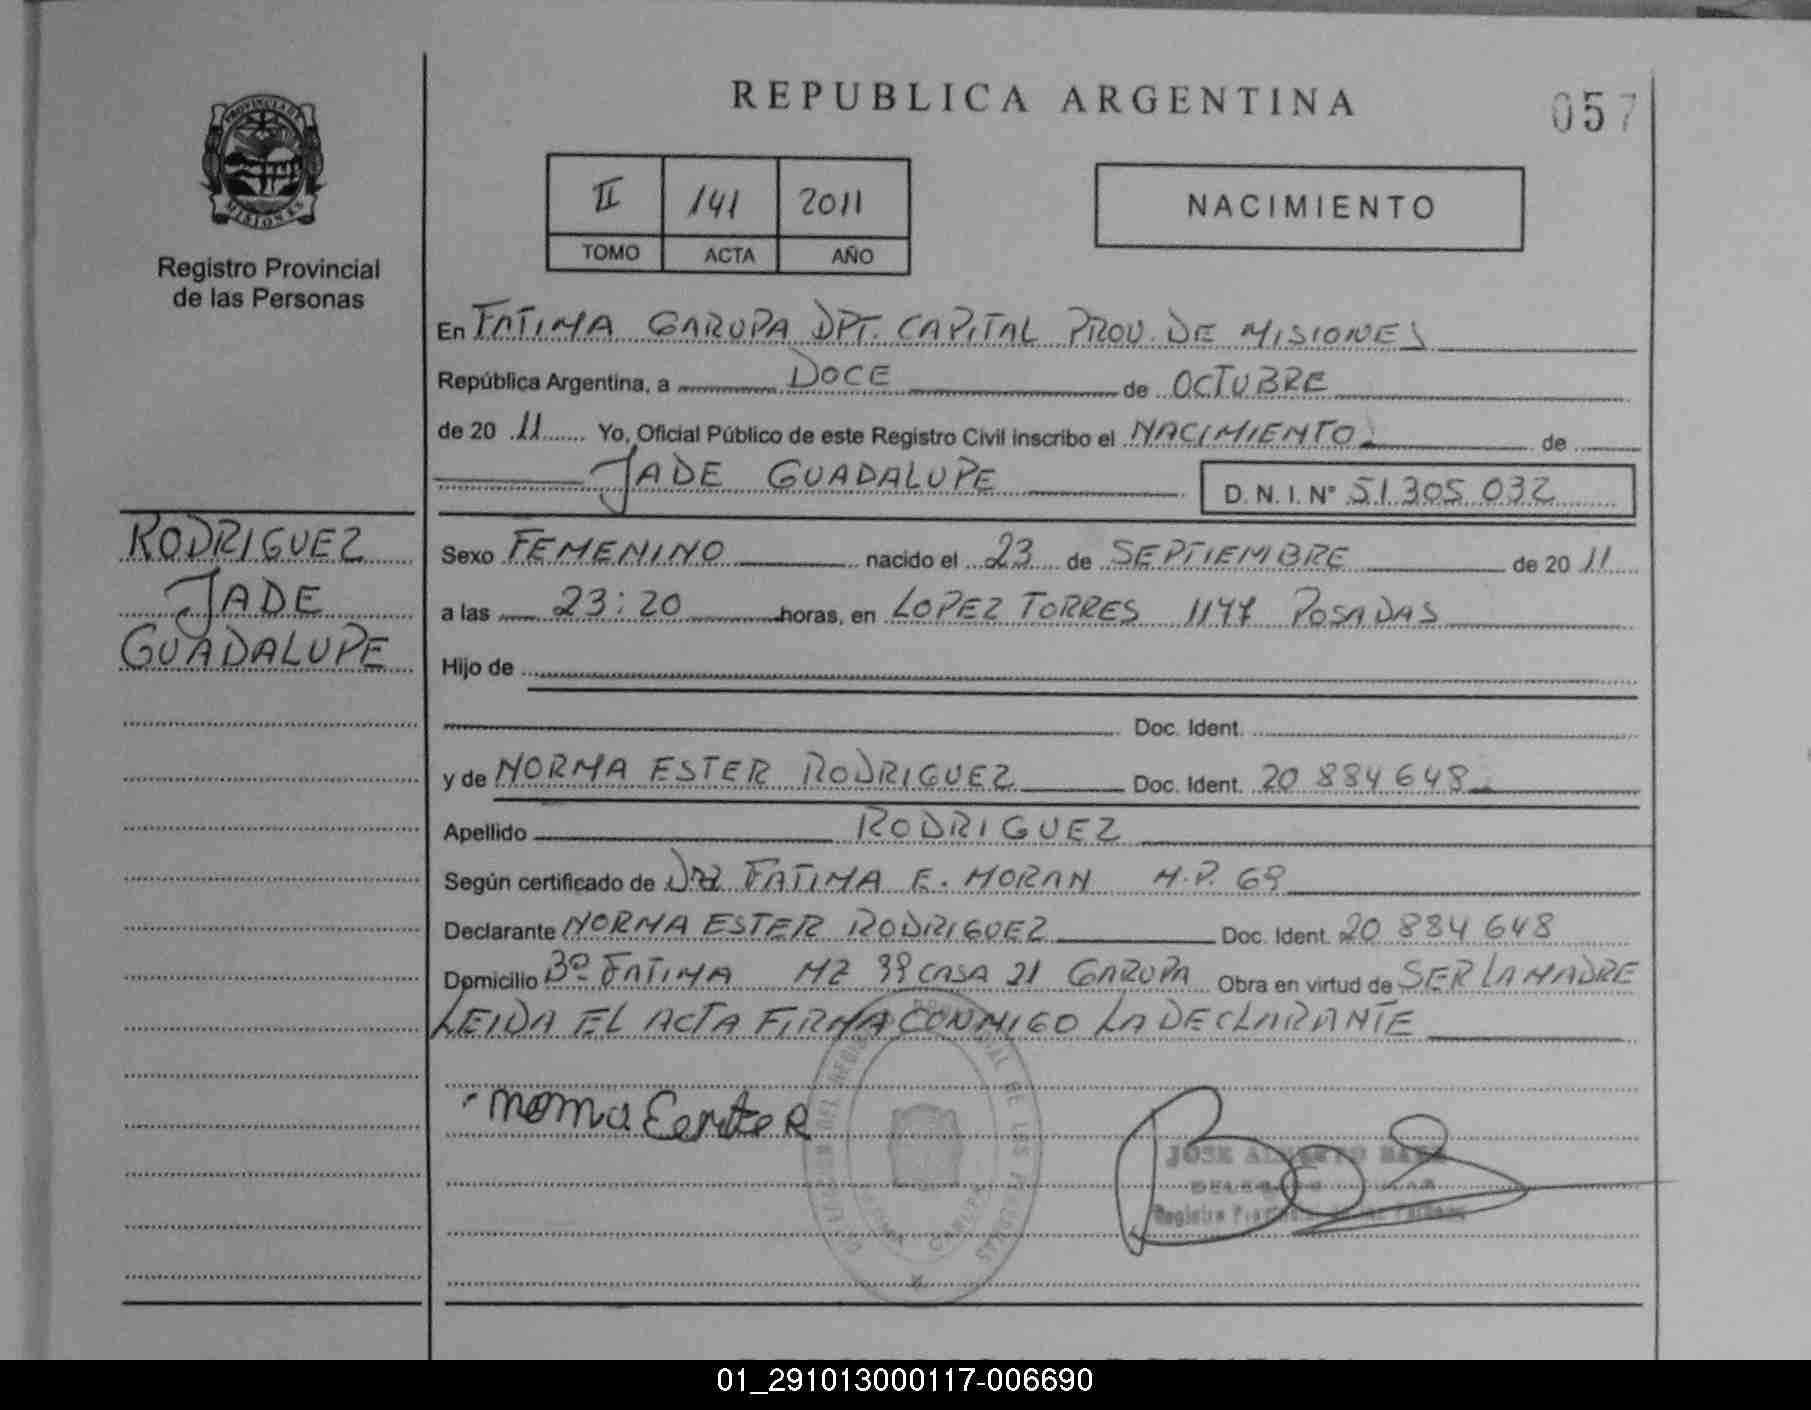 REPUBLICA ARGENTINA
057
PROVINCIA DE
MISIONES
Registro Provincial
de las Personas
II 141 2011
TOMO ACTA AÑO
NACIMIENTO
En FATIMA GARUPA DPT. CAPITAL PROV. DE MISIONES
República Argentina, a DOCE de OCTUBRE
de 20 11 Yo, Oficial Público de este Registro Civil inscribo el NACIMIENTO de
JADE GUADALUPE D.N.I.Nº 51.305.032
RODRIGUEZ
JADE
GUADALUPE
Sexo FEMENINO nacido el 23 de SEPTIEMBRE de 20 11
a las 23:20 horas, en LOPEZ TORRES 1177 POSADAS
Hijo de
Doc. Ident.
y de NORMA ESTER RODRIGUEZ Doc. Ident. 20 884 648
Apellido RODRIGUEZ
Según certificado de DRA FATIMA E. MORAN M.P. 69
Declarante NORMA ESTER RODRIGUEZ Doc. Ident. 20 884 648
Domicilio Bº FATIMA MZ 99 CASA 21 GARUPA Obra en virtud de SER LA MADRE
LEIDA EL ACTA FIRMA CONMIGO LA DECLARANTE
JOSE ALBERTO
Registro Provincial de las Personas
01_291013000117-006690